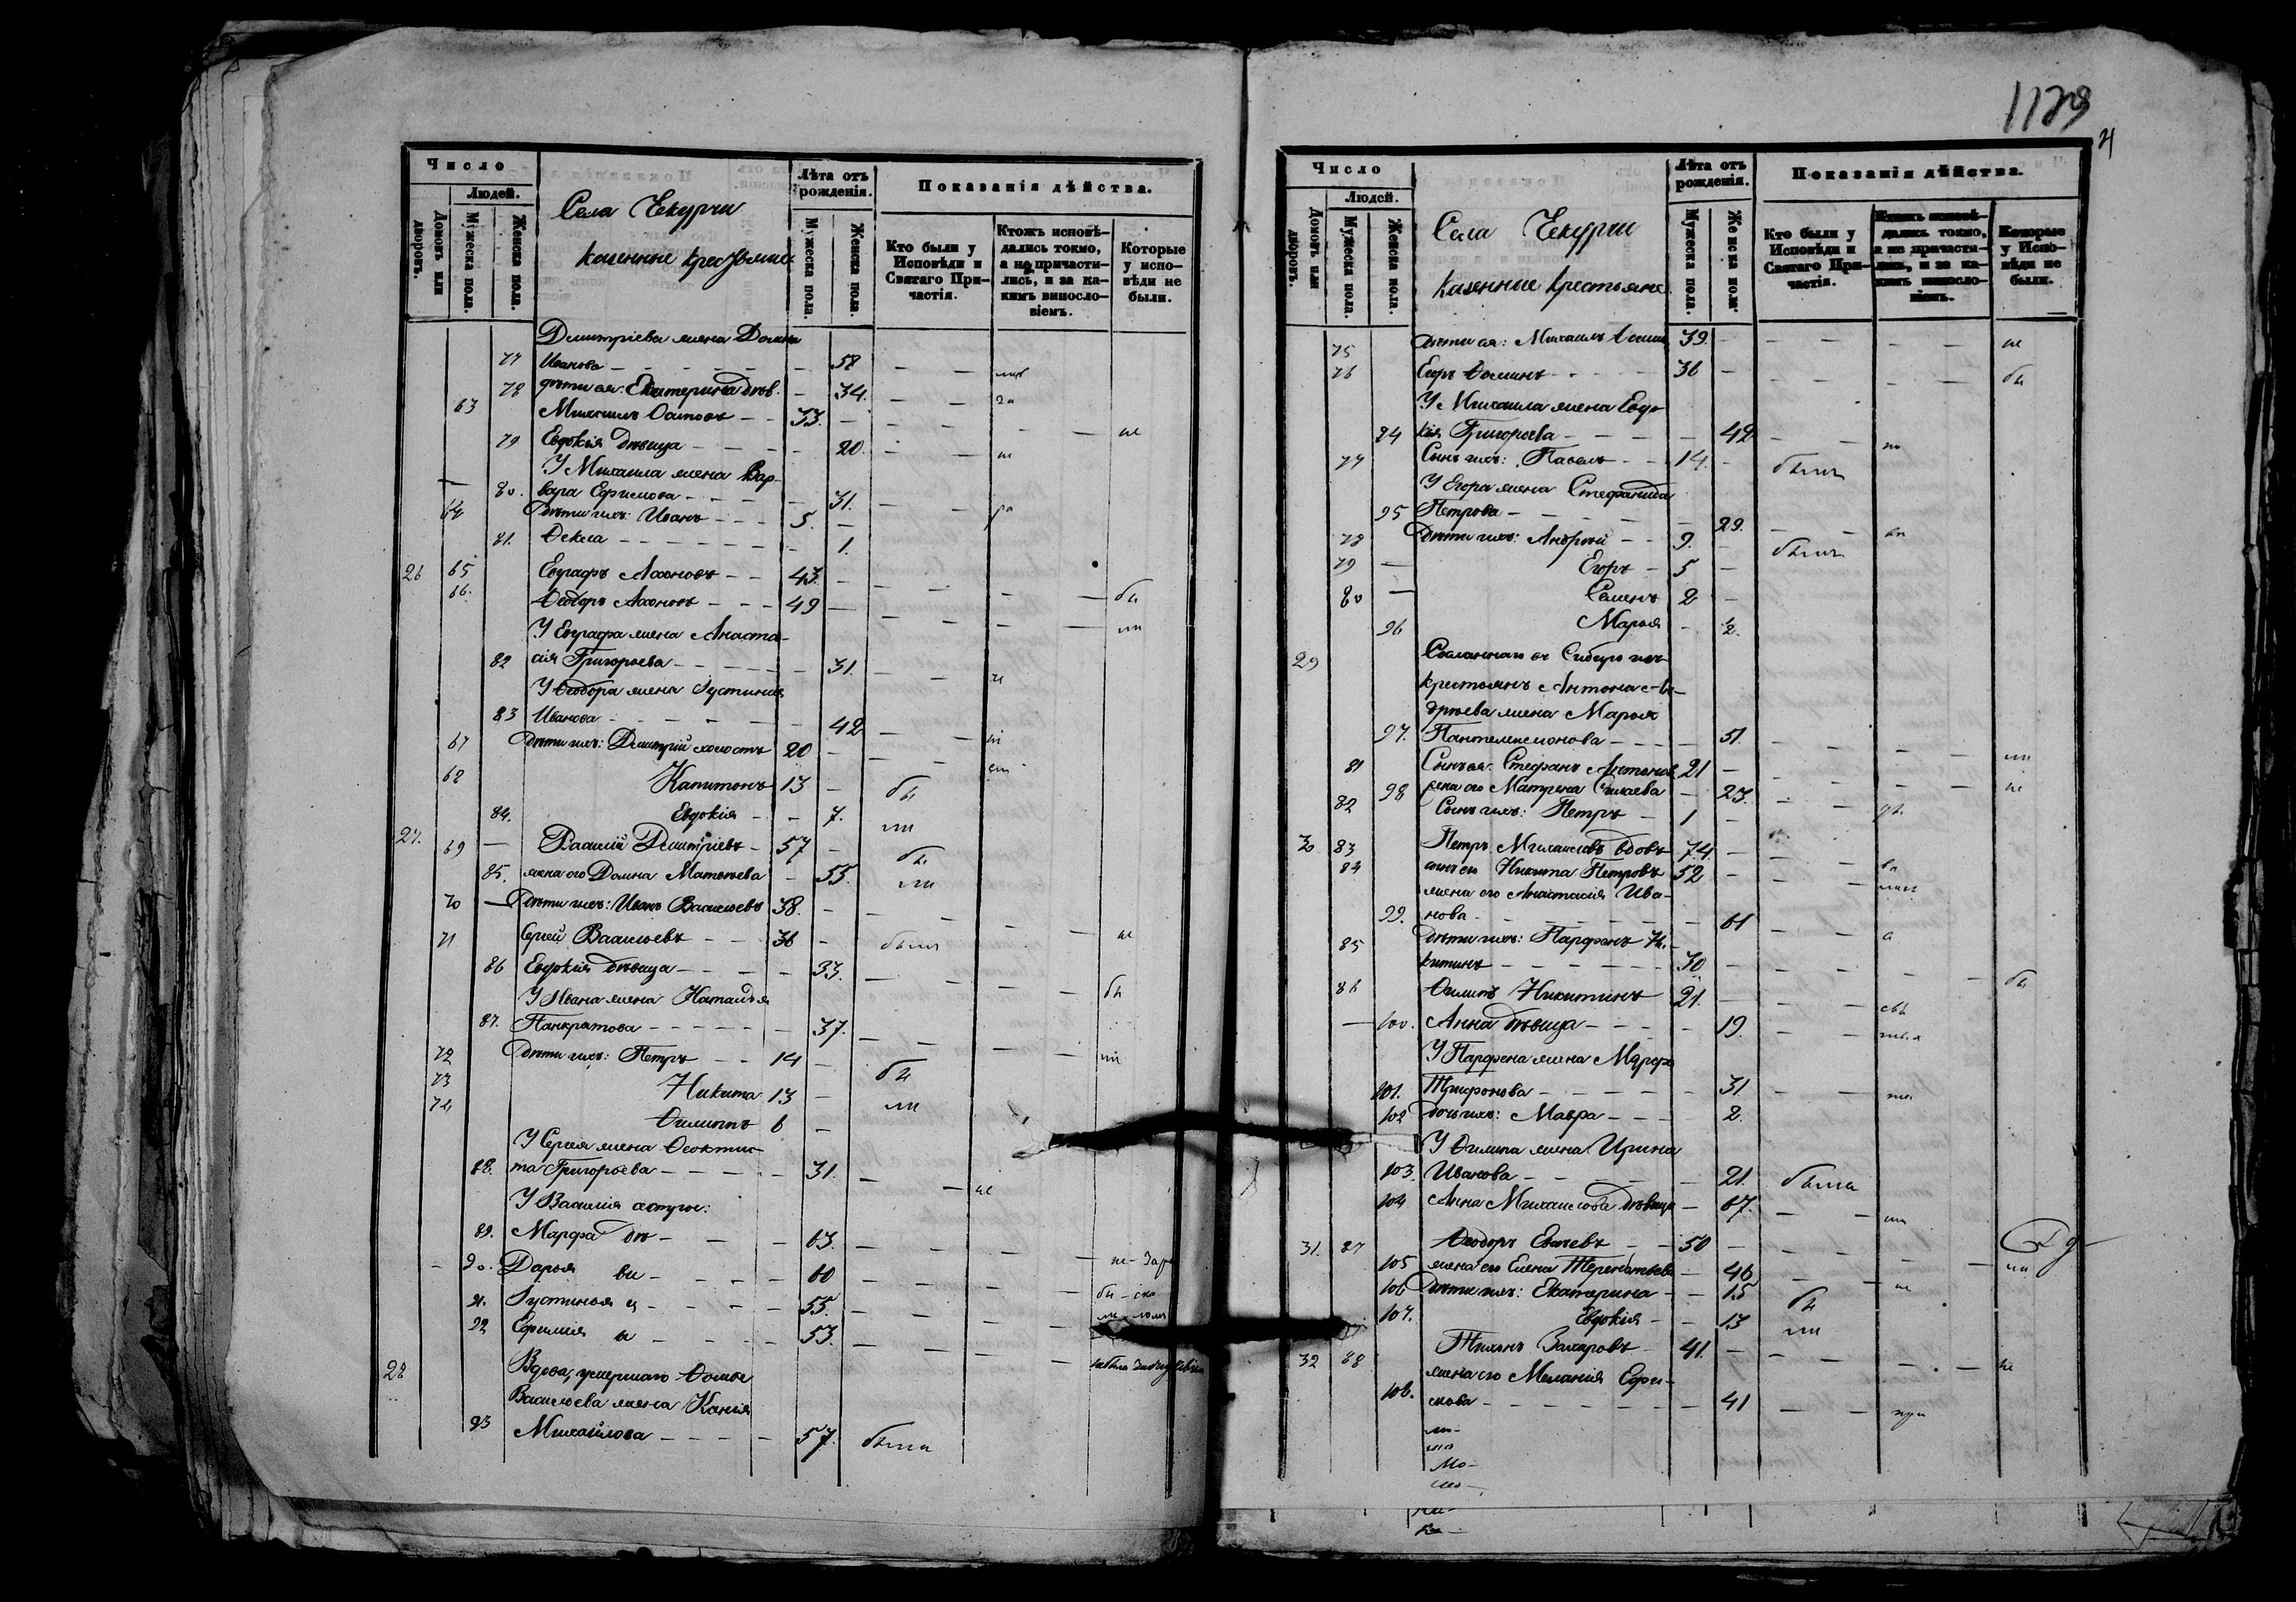 Число
Людей.
Домовъ или дворовъ.
Мужеска пола.
Женска пола.
Села Чекурчи
казенные крестьяне
Лѣта отъ рожденія.
Мужеска пола.
Женска пола.
Показанія дѣйства.
Кто были у Исповѣди и Святаго Причастія.
Ктожъ исповѣдались токмо, а не причастились, и за какимъ винословіемъ.
Которые у исповѣди не были.
Дмитріева жена Домна
77 Иванова 58
78 дѣти ея: Екатерина дѣв. 34.
63 Михаилъ 33.
79 Евдокія дѣвица 20. не
У Михаила жена Вар-
80. вара Ефимова 31.
64 Дѣти ихъ: Иванъ 5.
81. Ѳекла 1.
26 65 Евграфъ 43.
66. Ѳеодоръ 49 бы
У Евграфа жена Анаста- ли
82 сія Григорьева 31.
У Ѳеодора жена Іустинія
83 Иванова 42
67 Дѣти ихъ: Димитрій холостъ 20
68 Капитонъ 13 бы
84. Евдокія 7. ли
27. 69 Василій Димитріевъ 57 бы
85. жена его Домна Матвѣева 55. ли
70 Дѣти ихъ: Иванъ Васильевъ 38.
71 Сергей Васильевъ 36 были не
86 Евдокія дѣвица 33.
У Ивана жена Наталья бы
87. Панкратова 37.
72 Дѣти ихъ: Петръ 14 бы ли
73 Никита 13 ли
74 Филиппъ 6
У Сергея жена Ѳеоктис-
88. та Григорьева 31. не
У Василія сестры:
89. Марфа дѣ 63.
90. Дарья ви 60
91. Іустинья ц 55.
92 Ефимія ы 53.
28 Вдова, умершаго Ѳомы
Васильева жена Ксенія
93 Михайлова 57. была
1129
Число
Людей.
Домовъ или дворовъ.
Мужеска пола.
Женска пола.
Села Чекурчи
казенные крестьяне
Лѣта отъ рожденія.
Мужеска пола.
Женска пола.
Показанія дѣйства.
Кто были у Исповѣди и Святаго Причастія.
Ктожъ исповѣдались токмо, а не причастились, и за какимъ винословіемъ.
Которые у Исповѣди не были.
75 Дѣти ея: Михаилъ Ѳоминъ 39. не
76 Егоръ Ѳоминъ 36 бы
У Михаила жена Евдо-
94 кія Григорьева 42
77 Сынъ ихъ: Павелъ 14. былъ
У Егора жена Стефанида
95 Петрова 29.
78 Дѣти ихъ: Андрей 9. былъ
79 Егоръ 5
80 Семенъ 2
96 Марья 2.
29 Сосланнаго въ Сибирь изъ
крестьянъ Антона Ан-
дреева жена Марья
97. Пантелеимонова 51. ли
81 Сынъ ея: Стефанъ Антоновъ 21 не
98 жена его Матрена 23.
82 Сынъ ихъ: Петръ 1
30 83 Петръ Михайловъ вдовъ 74.
84 сынъ его Никита Петровъ 52
жена его Анастасія Ива-
99. нова 61
85 дѣти ихъ: Парфенъ Ни-
китинъ 30 бы
86 Филипъ Никитинъ 21.
100. Анна дѣвица 19.
У Парфена жена Марфа
101. Трифонова 31
102 дочь ихъ: Мавра 2.
У Филипа жена Ирина
103. Иванова 21. была
104 Анна Михайлова дѣвица 67.
31. 87 Ѳеодоръ 50
105 жена его Елена Терентьева 46 ли
106 Дѣти ихъ: Екатерина 15 бы
107. Евдокія 13 ли
32 88 Тихонъ Захаровъ 41. не
жена его Меланія Ефи-
108. мова 41